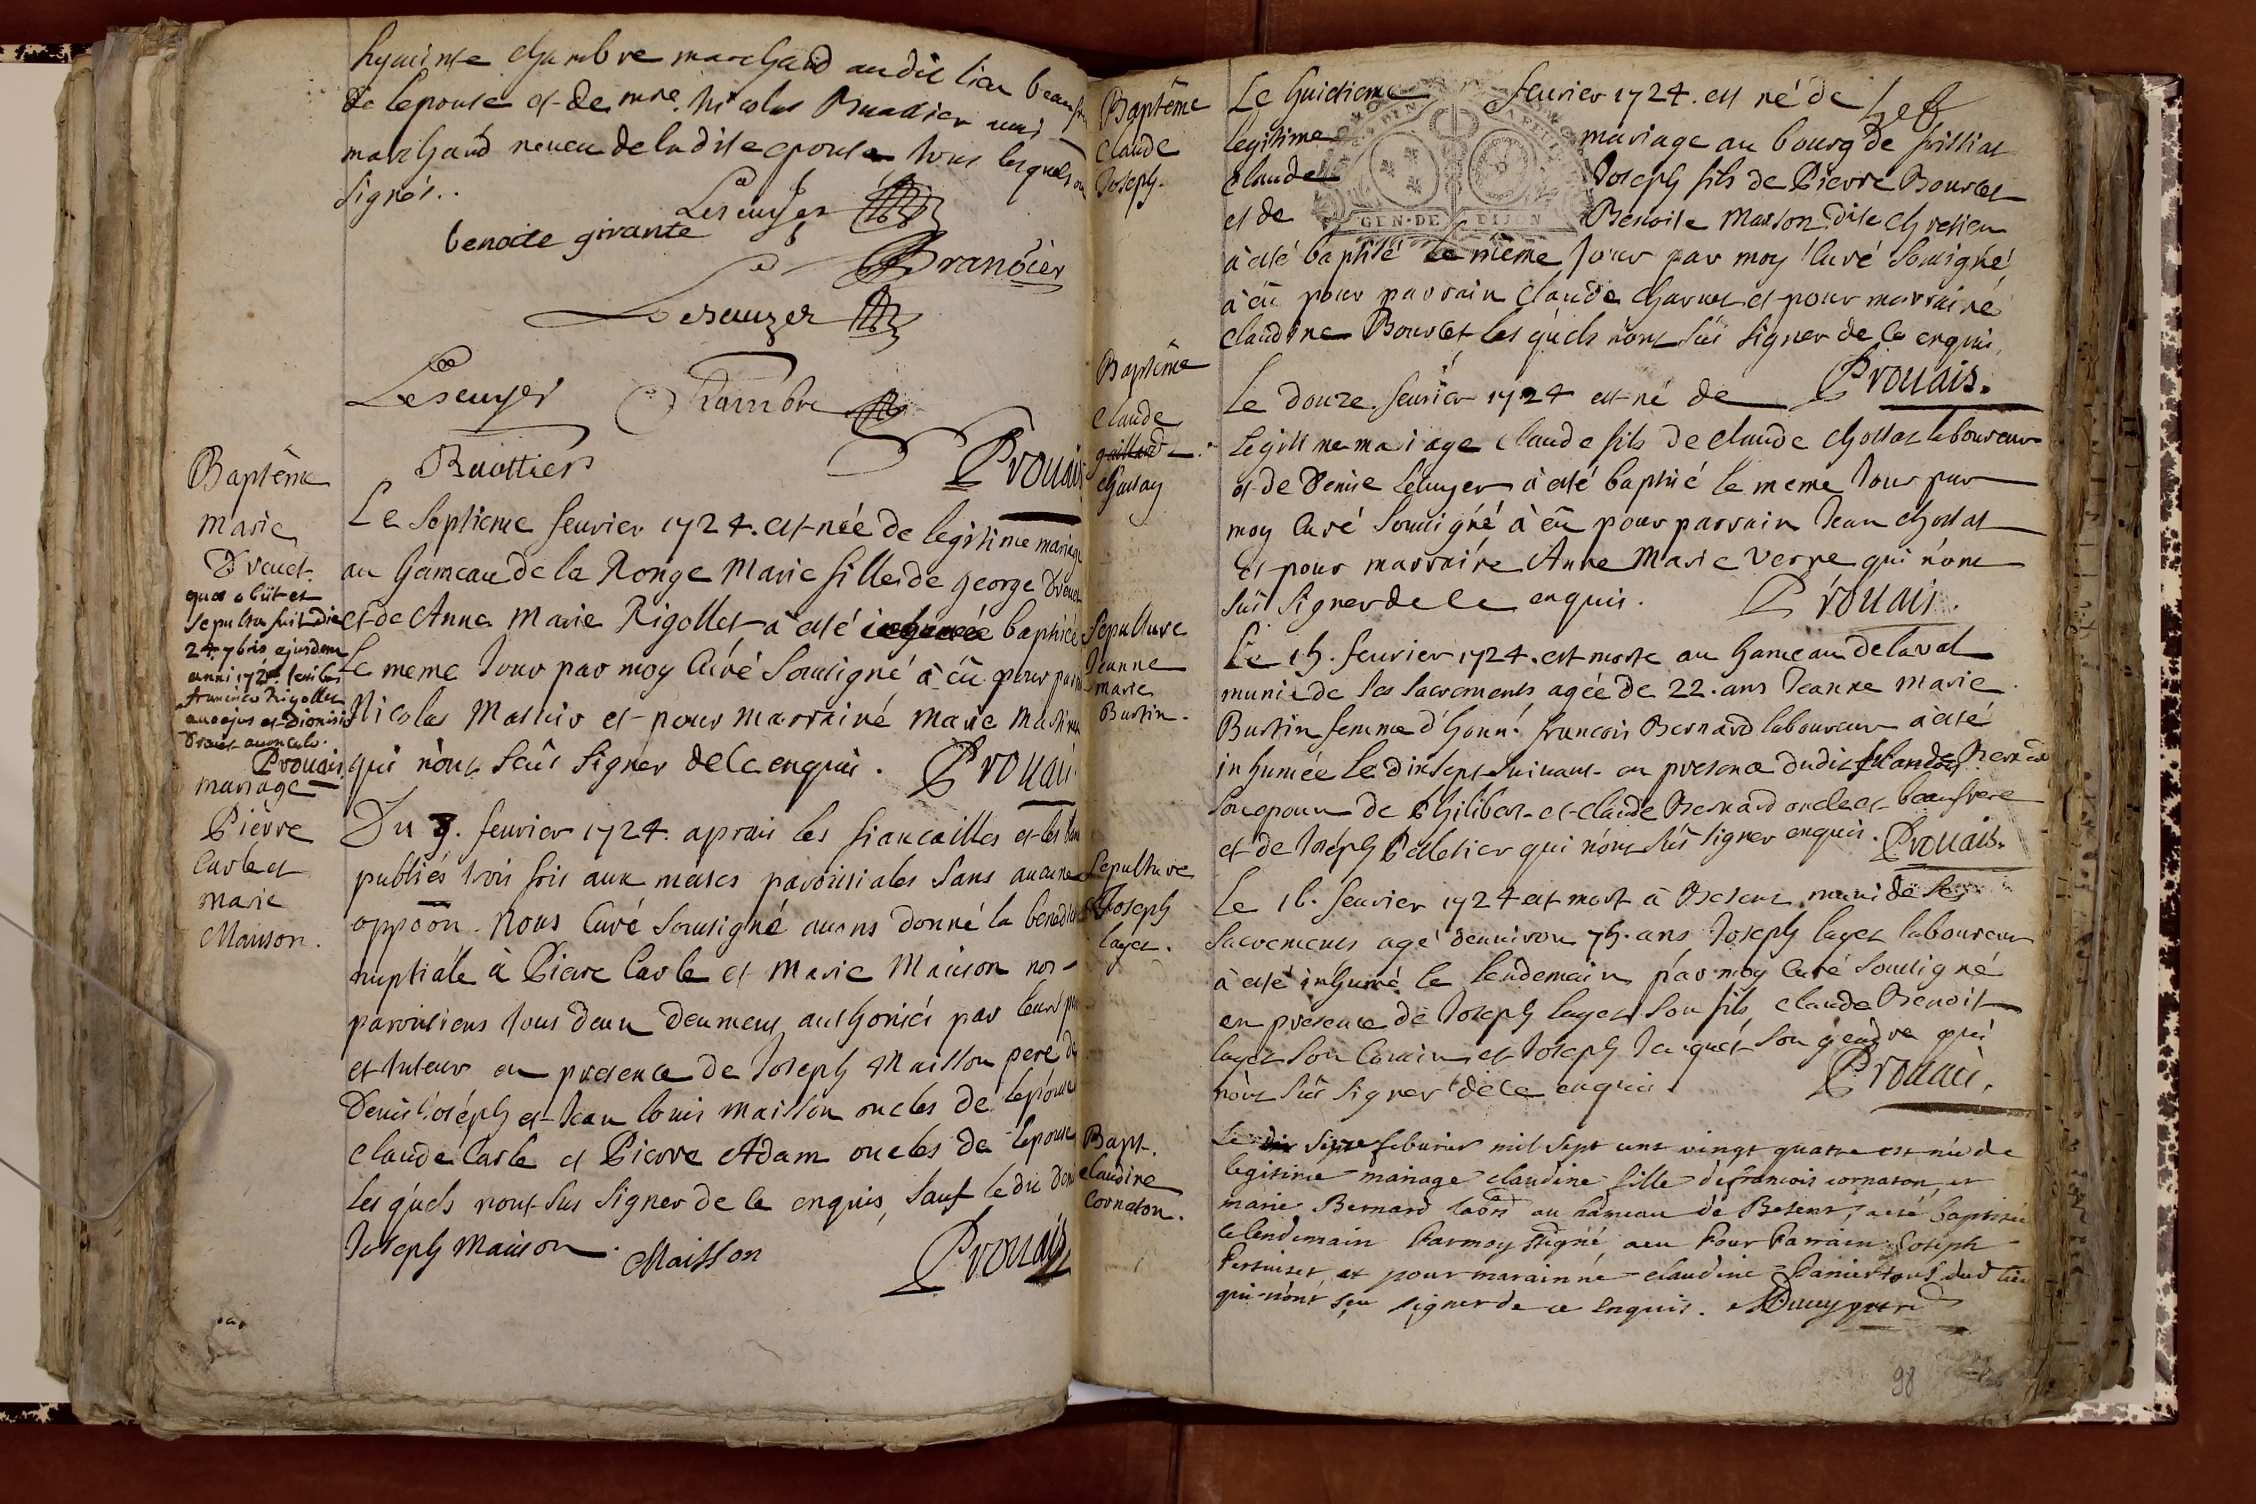 hyacinte chambre marchand audit lieu beaufre
de lepouse et de mre. Nicolas Buattier aussi
marchand neveu de ladite epouse, tous lesquels on
signés..
Lescuyer
benoite girante
Brandier
Lescuyer
Lescuyer Chambre
Buottier
Prouais
Baptême
Marie
Drouet.
quæ obiit et
sepulta fuit die
24. 7bris ejusdem
anni 1724. testibus
francisco Rigollet
avo ejus et Dionisio
Drouet avunculo.
Prouais
Le septieme feurier 1724. est née de legitime mariage
au hameau de la Ronge Marie fille de george Drouet
et de Anne Marie Rigollet à été inhumée baptisée
Le meme jour par moy Curé sousigné à eû pour parain
Nicolas Mathir et pour marrainé Marie Mathieu
qui n'ont seûs signer de ce enquis. Prouais
mariage
Pierre
Carle et
Marie
Maison.
Du 9. feurier 1724. aprais les fiancailles et les bans
publiés trois fois aux messes paroissiales sans aucune
oppôon. Nous Curé sousigné auons donné la benedictio
nuptiale à Pierre Carle et Marie Maison nos
paroissiens tous deux demeus, authorisés par leurs pe
et tuteur en presence de Joseph Maisson pere de
Denis Joséph et Jean louis maisson oncles de lepouse
Claude Carle et Pierre Adam oncles de lepoux
les quels nont sus signer de ce enquis, sauf ledit Denis
Joseph Maison. Maisson Prouais
Baptême
Claude
Joseph.
Le huictieme feurier 1724. est né de
legitime mariage au bourg de frissiat
Claude Joseph fils de Pierre Bourcet
et de Benoite Maison dite Chretien
GEN·DE DIJON
à été baptisé le même jour par moy Curé sousigné
à eû pour parrain Claude Charnet et pour marrainé
Claudine Bourcet, les quels n'ont sûs signer de ce enquis,
Prouais.
Baptême
Claude
gaillard
chossay
Le douze feurier 1724 est né de
Legitime mariage Claude fils de claude Chossat laboureur
et de Denise Lecuyer à été baptisé le meme jour par
moy Curé sousigné à eû pour parrain Jean Chossat
et pour marrainé Anne Marie Verne qui n'ont
sûs signer de ce enquis. Prouais.
Sepulture
Jeanne
marie
Burtin.
Le 15. feurier 1724. est morte au hameau delaval
munie de ses sacrements agée de 22. ans Jeanne Marie
Burtin femme d'honn. francois Bernard laboureur à été
inhumée le dixsept suivant en presence dudit francois Bernard
son epoux de Philibert et claude Bernard oncle et beaufrere
et de Joséph Pelletier qui n'ont sûs signer enquis. Prouais.
Sepulture
Joseph
layet.
Le 16. feurier 1724 est mort à Besent muni de ses
sacrements agé denviron 75. ans Joseph layet laboureur
à été inhumé le lendemain par moy Curé sousigné
en presence de Joseph layet son fils, claude Benoit
layet son Cousin, et Joseph Jacquet son gendre qui
n'ont sûs signer de ce enquis. Prouais.
Bapt.
Claudine
Cornaton.
Le dix seize feburier mil sept cent vingt quatre est née de
legitime mariage claudine fille de francois cornaton, et
marie Bernard labrs au hameau de Besent, a été baptisée
le lendemain Par moy ssigné, a eu Pour Parrain Joseph
Pertuiset, et pour marainné claudine Panier tous dud lieu
qui n'ont seu signer de ce enquis.
98